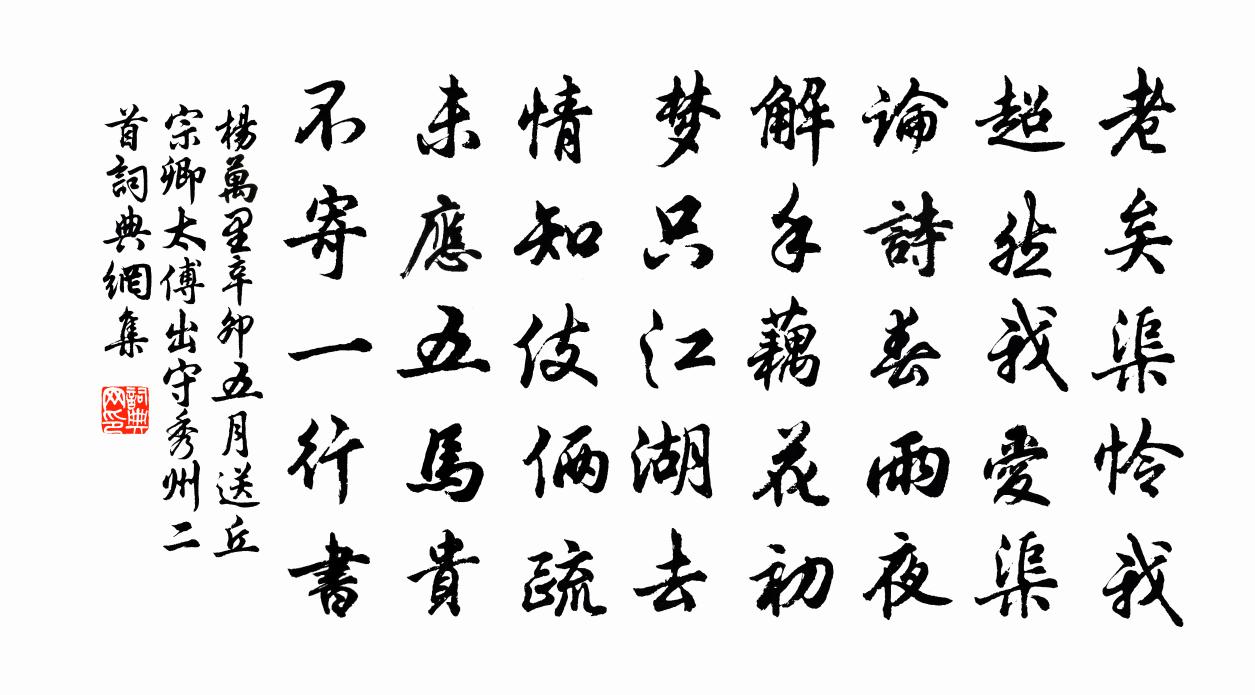 老矣渠怜我
超然我愛渠
論詩春雨夜
解手藕花初
梦只江湖去
情知伎俩疏
未應五馬貴
不寄一行書
楊萬里辛卯五月送丘
宗卿太傅出守秀州二
首詞典網集
詞典网印